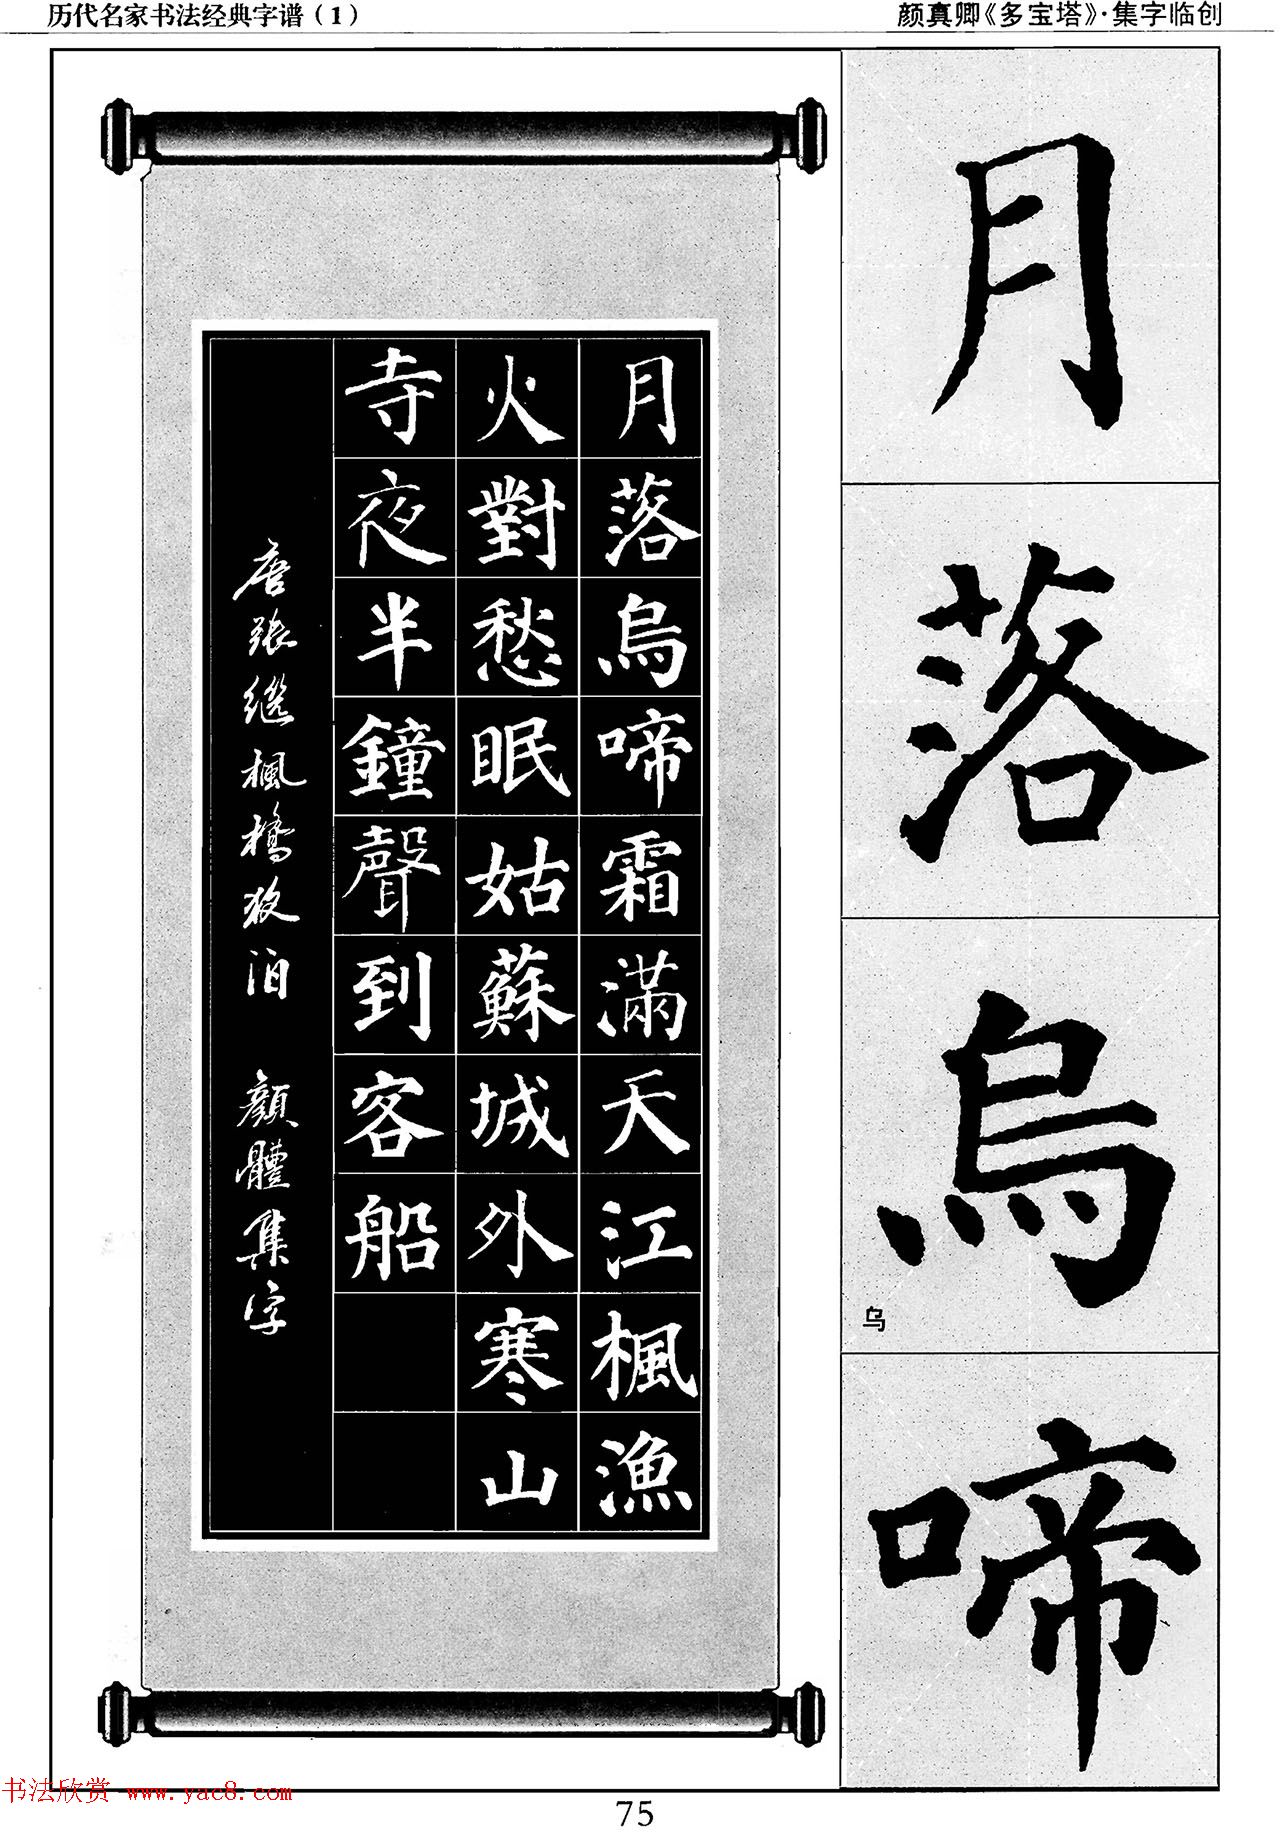 历代名家书法经典字谱（1）
颜真卿《多宝塔》·集字临创
月落烏啼霜滿天江楓漁
火對愁眠姑蘇城外寒山
寺夜半鐘聲到客船
唐張繼楓橋夜泊 顏體集字
月
落
烏
乌
啼
书法欣赏 www.yac8.com
75